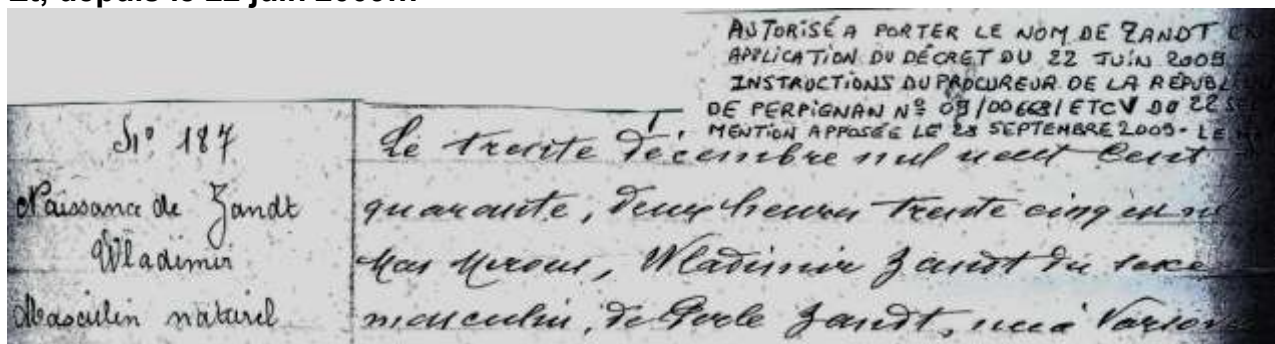 Et, depuis le 22 juin 2009...
AUTORISÉ A PORTER LE NOM DE ZANDT EN
APPLICATION DU DÉCRET DU 22 JUIN 2009
INSTRUCTIONS DU PROCUREUR DE LA RÉPUBL
DE PERPIGNAN Nº 09/00668/ETCV DU 22 SE
MENTION APPOSÉE LE 28 SEPTEMBRE 2009- LE
Nº 187
Naissance de Zandt
Wladimir
Masculin naturel
Le trente décembre mil neuf cent
quarante, deux heures trente cinq est né
Mas Wladimir Zandt du sexe
masculin, de Zandt, née à Varsovi